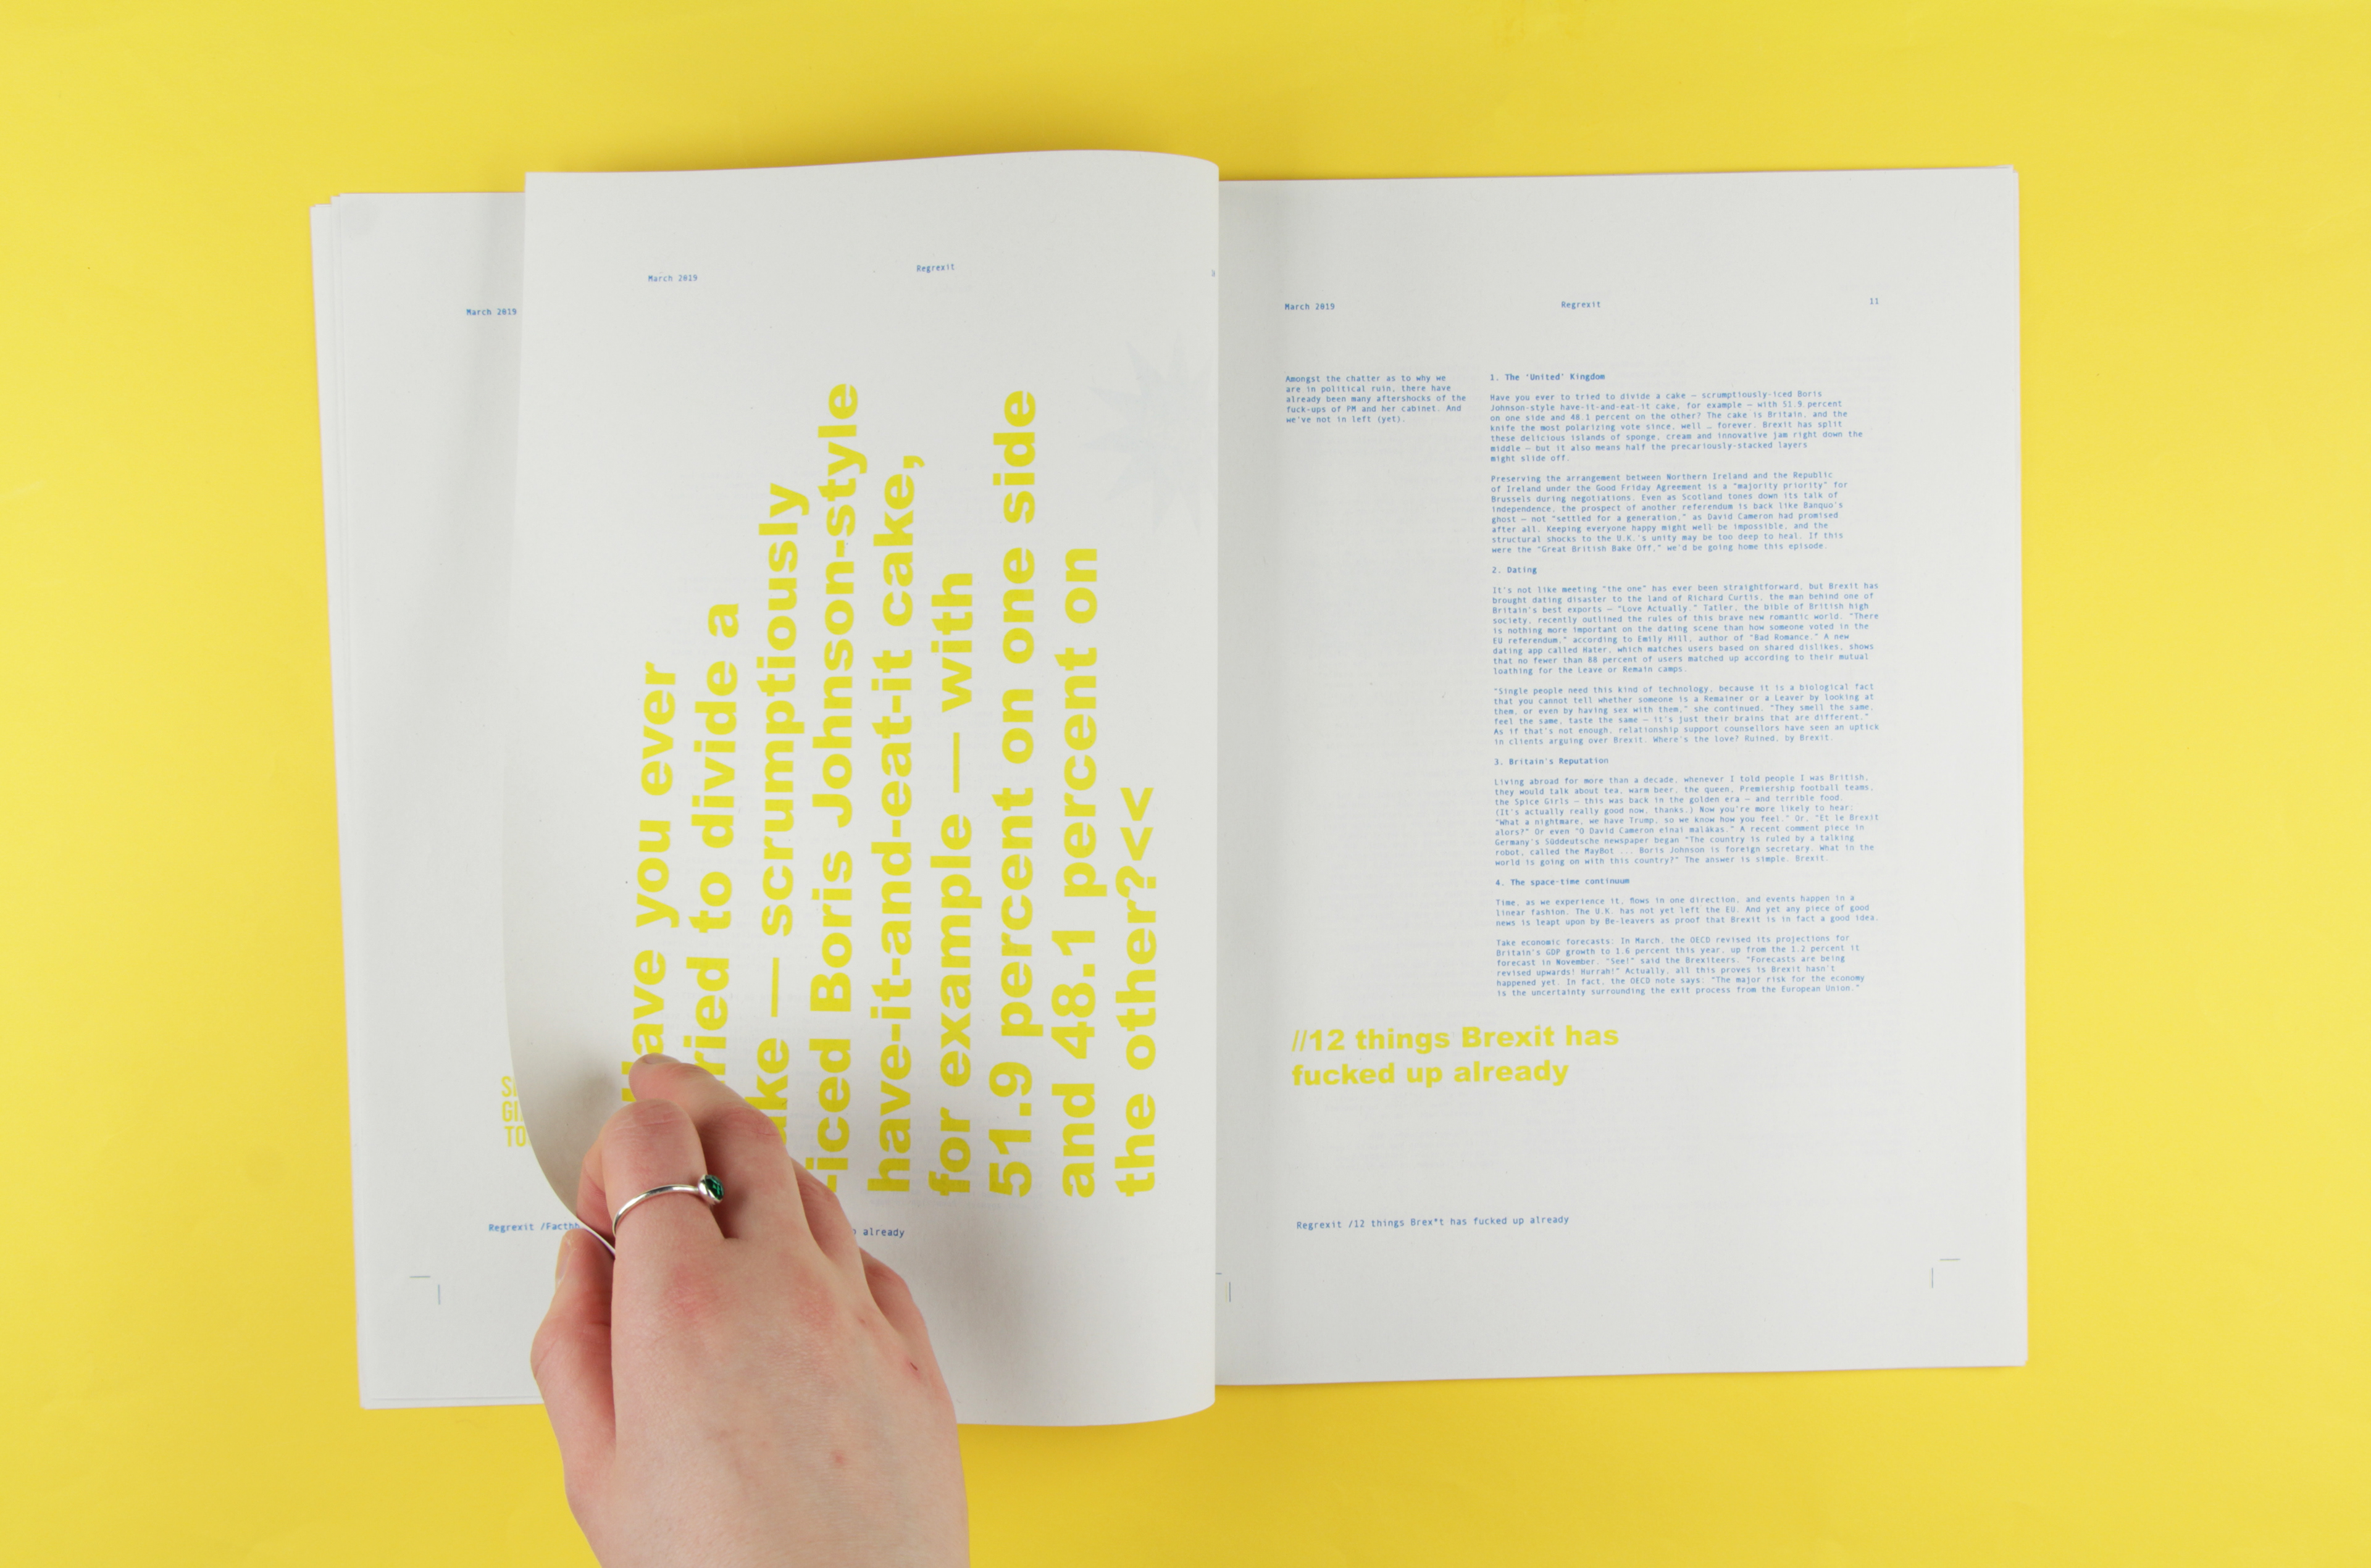 March 2019
Regrexit /Facth
March 2019
Regrexit
Have you ever
tried to divide a
cake — scrumptiously
-iced Boris Johnson-style
have-it-and-eat-it cake,
for example — with
51.9 percent on one side
and 48.1 percent on
the other?<<
already
March 2019
Regrexit
11
Amongst the chatter as to why we
are in political ruin, there have
already been many aftershocks of the
fuck-ups of PM and her cabinet. And
we've not in left (yet).
1. The 'United' Kingdom
Have you ever to tried to divide a cake — scrumptiously-iced Boris
Johnson-style have-it-and-eat-it cake, for example — with 51.9 percent
on one side and 48.1 percent on the other? The cake is Britain, and the
knife the most polarizing vote since, well … forever. Brexit has split
these delicious islands of sponge, cream and innovative jam right down the
middle — but it also means half the precariously-stacked layers
might slide off.
Preserving the arrangement between Northern Ireland and the Republic
of Ireland under the Good Friday Agreement is a "majority priority" for
Brussels during negotiations. Even as Scotland tones down its talk of
independence, the prospect of another referendum is back like Banquo's
ghost — not "settled for a generation," as David Cameron had promised
after all. Keeping everyone happy might well be impossible, and the
structural shocks to the U.K.'s unity may be too deep to heal. If this
were the "Great British Bake Off," we'd be going home this episode.
2. Dating
It's not like meeting "the one" has ever been straightforward, but Brexit has
brought dating disaster to the land of Richard Curtis, the man behind one of
Britain's best exports — "Love Actually." Tatler, the bible of British high
society, recently outlined the rules of this brave new romantic world. "There
is nothing more important on the dating scene than how someone voted in the
EU referendum," according to Emily Hill, author of "Bad Romance." A new
dating app called Hater, which matches users based on shared dislikes, shows
that no fewer than 88 percent of users matched up according to their mutual
loathing for the Leave or Remain camps.
"Single people need this kind of technology, because it is a biological fact
that you cannot tell whether someone is a Remainer or a Leaver by looking at
them, or even by having sex with them," she continued. "They smell the same,
feel the same, taste the same — it's just their brains that are different."
As if that's not enough, relationship support counsellors have seen an uptick
in clients arguing over Brexit. Where's the love? Ruined, by Brexit.
3. Britain's Reputation
Living abroad for more than a decade, whenever I told people I was British,
they would talk about tea, warm beer, the queen, Premiership football teams,
the Spice Girls — this was back in the golden era — and terrible food.
(It's actually really good now, thanks.) Now you're more likely to hear:
"What a nightmare, we have Trump, so we know how you feel." Or, "Et le Brexit
alors?" Or even "O David Cameron einai malákas." A recent comment piece in
Germany's Süddeutsche newspaper began "The country is ruled by a talking
robot, called the MayBot ... Boris Johnson is foreign secretary. What in the
world is going on with this country?" The answer is simple. Brexit.
4. The space-time continuum
Time, as we experience it, flows in one direction, and events happen in a
linear fashion. The U.K. has not yet left the EU. And yet any piece of good
news is leapt upon by Be-leavers as proof that Brexit is in fact a good idea.
Take economic forecasts: In March, the OECD revised its projections for
Britain's GDP growth to 1.6 percent this year, up from the 1.2 percent it
forecast in November. "See!" said the Brexiteers. "Forecasts are being
revised upwards! Hurrah!" Actually, all this proves is Brexit hasn't
happened yet. In fact, the OECD note says: "The major risk for the economy
is the uncertainty surrounding the exit process from the European Union."
//12 things Brexit has
fucked up already
Regrexit /12 things Brex*t has fucked up already